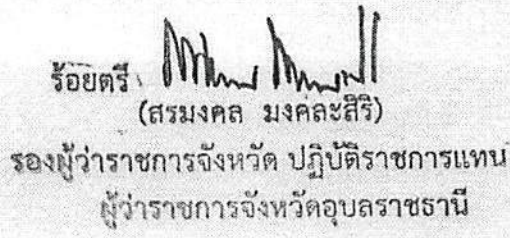 ร้อยตรี
(สรมงคล มงคละสิริ)
รองผู้ว่าราชการจังหวัด ปฏิบัติราชการแทน
ผู้ว่าราชการจังหวัดอุบลราชธานี